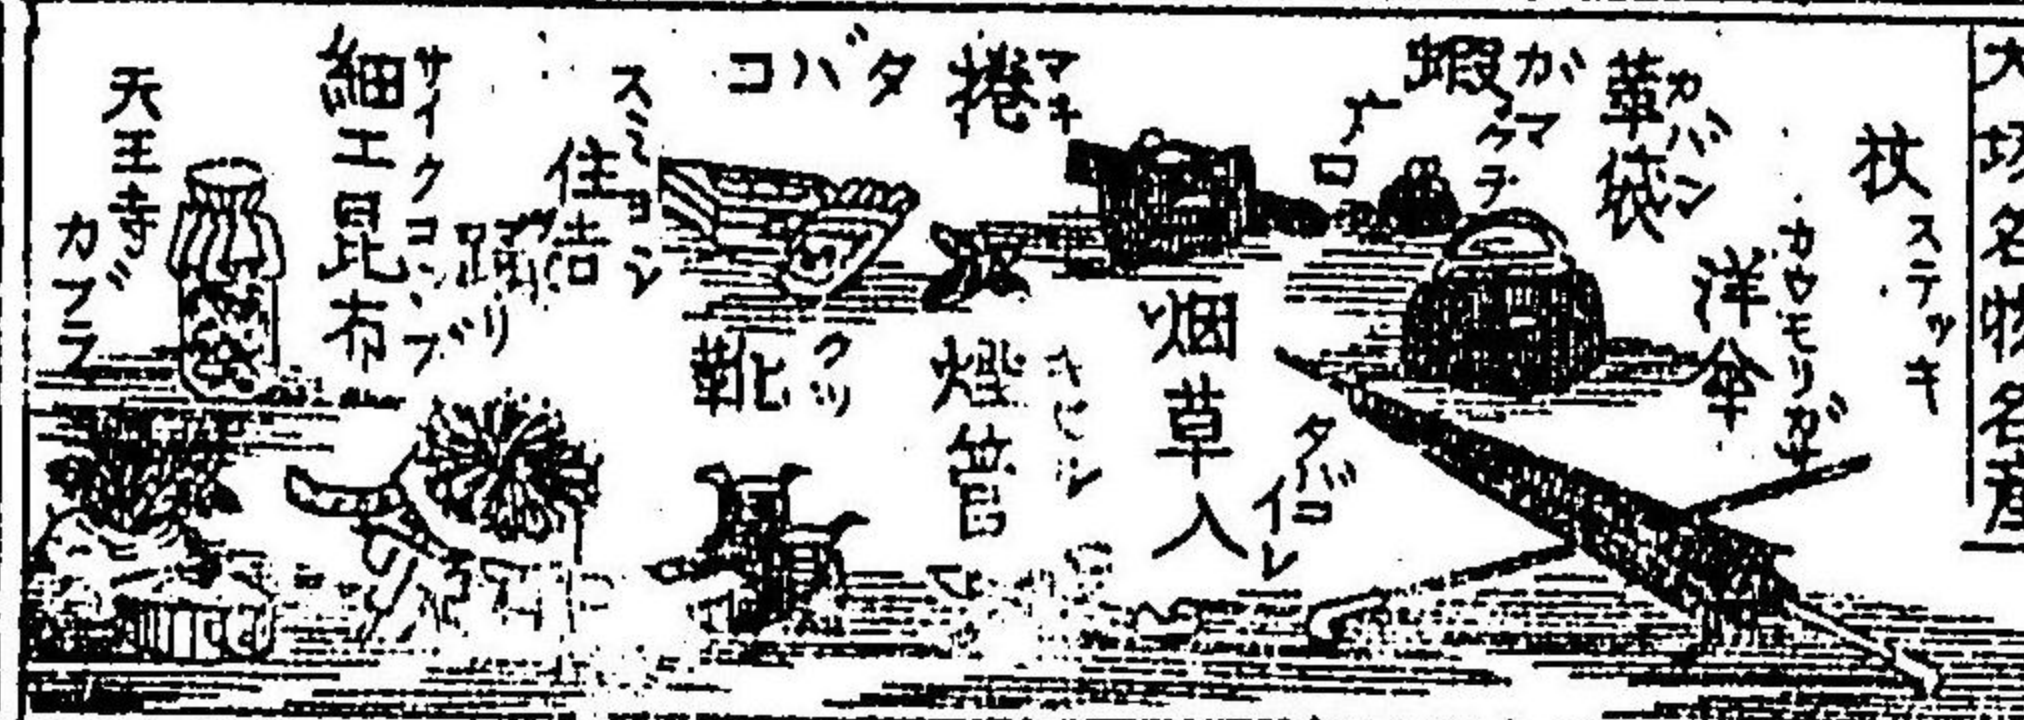 大坂名物名産
杖
ステッキ
洋傘
カウモリガサ
革袋
カバン
蝦广口
ガマグチ
烟草入
タバコイレ
捲タバコ
マキ
煙管
キセル
靴
クツ
住吉踊
スミヨシ
ヲドリ
細工昆布
サイクコンブ
天王寺
カブラ